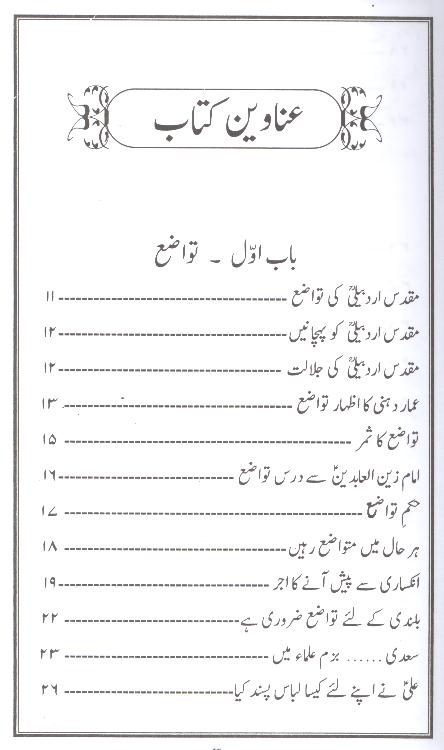 عناوین کتاب
باب اوّل ۔ تواضع
مقدس اردبیلیؒ کی تواضع ۱۱
مقدس اردبیلیؒ کو پہچانیں ۱۲
مقدس اردبیلیؒ کی جلالت ۱۲
عمار دہنی کا اظہار تواضع ۱۳
تواضع کا ثمر ۱۵
امام زین العابدینؑ سے درس تواضع ۱۶
حکم تواضع ۱۷
ہر حال میں متواضع رہیں ۱۸
انکساری سے پیش آنے کا اجر ۱۹
بلندی کے لئے تواضع ضروری ہے ۲۲
سعدی ...... بزم علماء میں ۲۳
علیؑ نے اپنے لئے کیسا لباس پسند کیا ۲۶